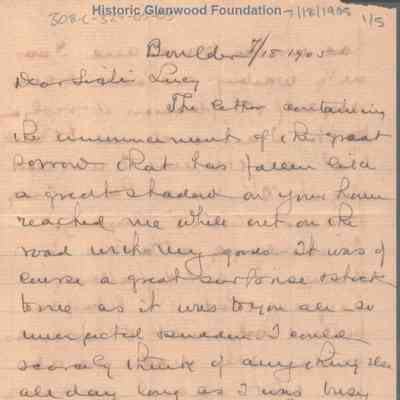 Historic Glenwood Foundation 7/18/1905 1/5
308-C-
Boulder 7/18 1905
Dear Sister Lucy
The letter containing
the announcement of the great
sorrow that has fallen like
a great shadow on your home
reached me while out on the
road with my goods It was of
course a great surprise & shock
to me as it was to you all so
unexpected & sudden I could
scarcely think of anything else
all day long as I was busy